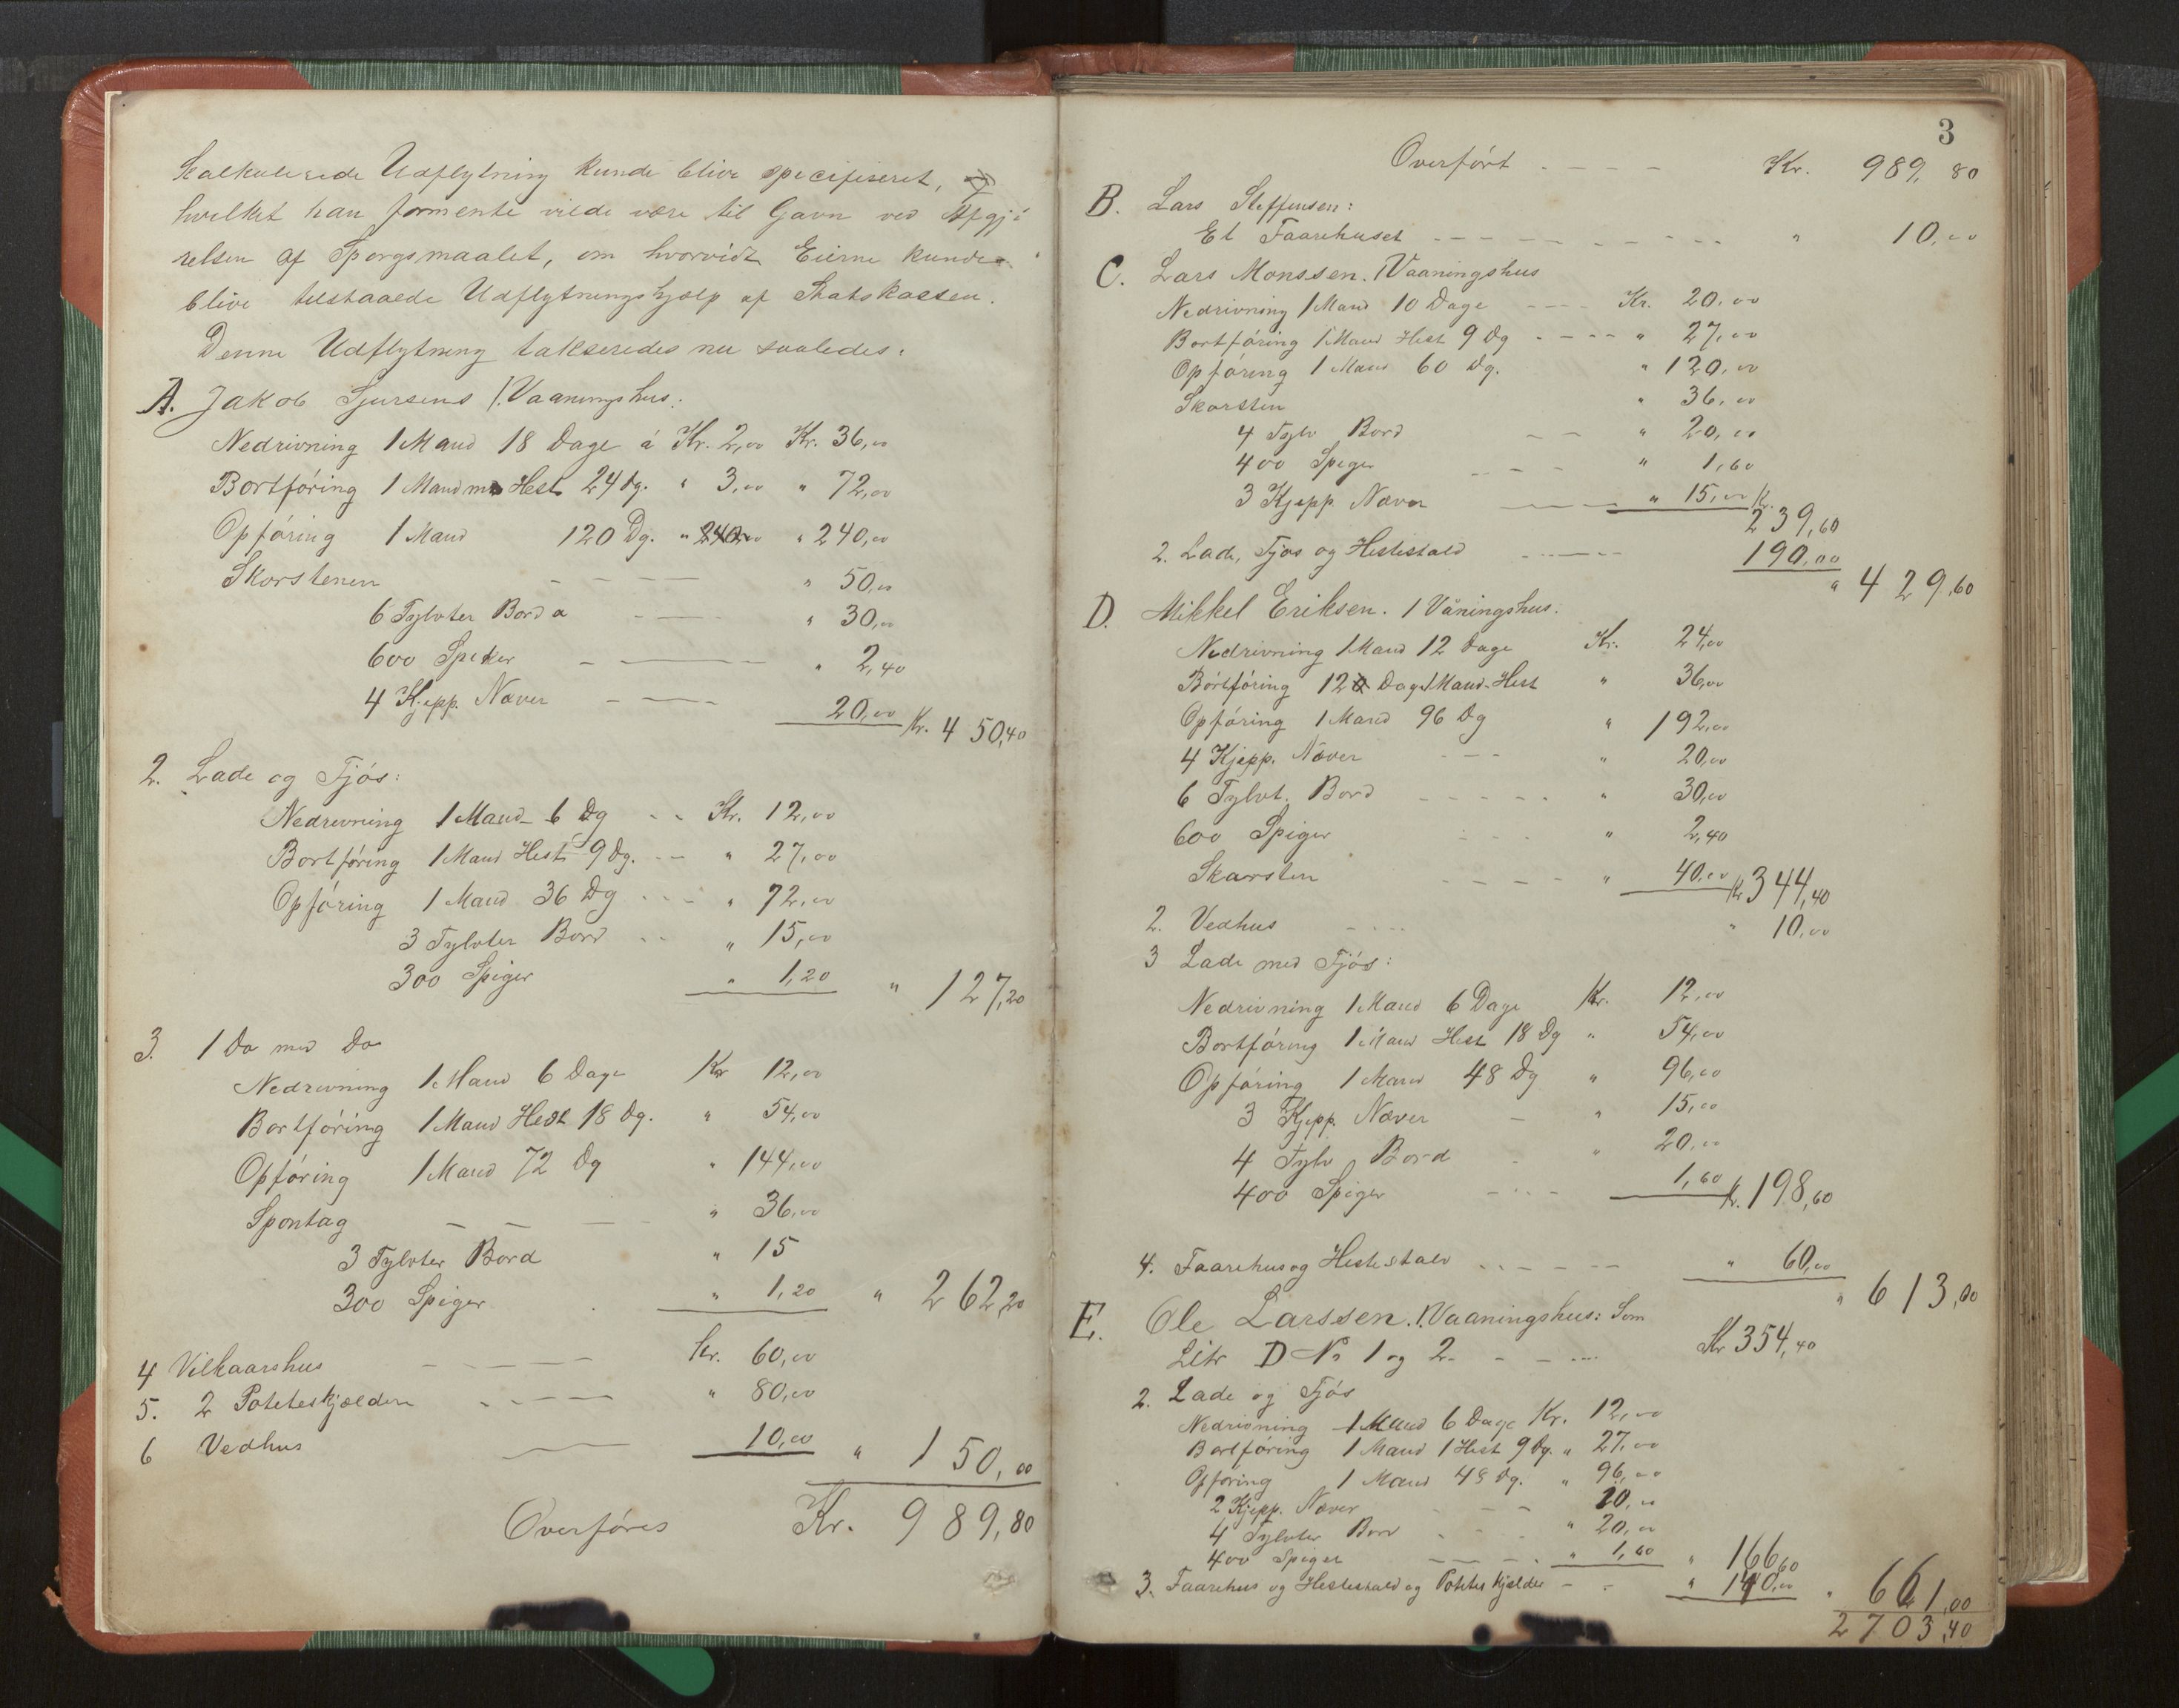 kalkulerede Udflytning kunde blive specifiseret,
hvilket han formente vilde være til Gavn ved Afgjö
relsen af Spørgsmaalet, om hvorvidt Eierne kunde
blive tilstaaede Udflytningshjælp af Statskassen.
Denne Udflytning takseredes nu saaledes:
A. Jakob Sjursens 1. Vaaningshus:
Nedrivning 1 Mand 18 Dage á Kr. 2,00 Kr. 36,00
Bortföring 1 Mand m Hest 24 dg. " 3,00 " 72,00
Opföring 1 Mand 120 Dg. " 240,00 " 240,00
Skorstenen " 50,00
6 Tylvter Bord a " 30,00
600 Spiker " 2,40
4 Kjepp. Næver 20,00 Kr. 450,40
2. Lade og Fjös:
Nedrivning 1 Mand 6 Dg Kr. 12,00
Bortföring 1 Mand Hest 9 Dg. " 27,00
Opföring 1 Mand 36 Dg " 72,00
3 Tylvter Bord " 15,00
300 Spiger " 1,20 " 127,20
3. 1 Do med Do
Nedrivning 1 Mand 6 Dage Kr 12,00
Bortföring 1 Mand Hest 18 Dg. " 54,00
Opföring 1 Mand 72 Dg " 144,00
Spontag " 36,00
3 Tylvter Bord " 15
300 Spiger " 1,20 " 262,20
4 Vilkaarshus Kr. 60,00
5. 2 Poteteskjeldere " 80,00
6 Vedhus 10,00 " 150,00
Overføres Kr. 989,80
3
Overfört Kr. 989,80
B. Lars Steffensen:
Et Faarehuset " 10,00
C. Lars Monssen. 1 Vaaningshus
Nedrivning 1 Mand 10 Dage Kr. 20,00
Bortföring 1 Mand Hest 9 Dg " 27,00
Opföring 1 Mand 60 Dg. " 120,00
Skorsten " 36,00
4 Tylv Bord " 20,00
400 Spiger " 1,60
3 Kjepp Næver " 15,00 Kr. 239,60
2. Lade, Fjös og Hestestald 190,00
" 429,60
D. Mikkel Eriksen. 1 Våningshus:
Nedrivning 1 Mand 12 Dage Kr. 24,00
Bortföring 12 Dag 1 Mand Hest " 36,00
Opföring 1 Mand 96 Dg " 192,00
4 Kjepp. Næver " 20,00
6 Tylvt. Bord " 30,00
600 Spiger " 2,40
Skorsten " 40,00 Kr 344,40
2. Vedhus " 10,00
3 Lade med Fjös:
Nedrivning 1 Mand 6 Dage Kr. 12,00
Bortföring 1 Mand Hest 18 Dg " 54,00
Opföring 1 Mand 48 Dg " 96,00
3 Kjepp. Næver " 15,00
4 Tylv Bord " 20,00
400 Spiger 1,60 Kr. 198,60
4. Faarehus og Hestestald " 60,00
" 613,00
E. Ole Larssen. 1. Vaaningshus: Som
Litr D No 1 og 2 Kr 354,40
2. Lade og Fjös
Nedrivning 1 Mand 6 Dage Kr. 12,00
Bortföring 1 Mand 1 Hest 9 Dg. " 27,00
Opföring 1 Mand 48 Dg. " 96,00
2 Kjepp. Næver 10,00
4 Tylvter Bord " 20,00
400 Spiger " 1,60 " 166,60
3. Faarehus og Hestestald og Potetes kjelder " 140,00 " 661,00
2703,40